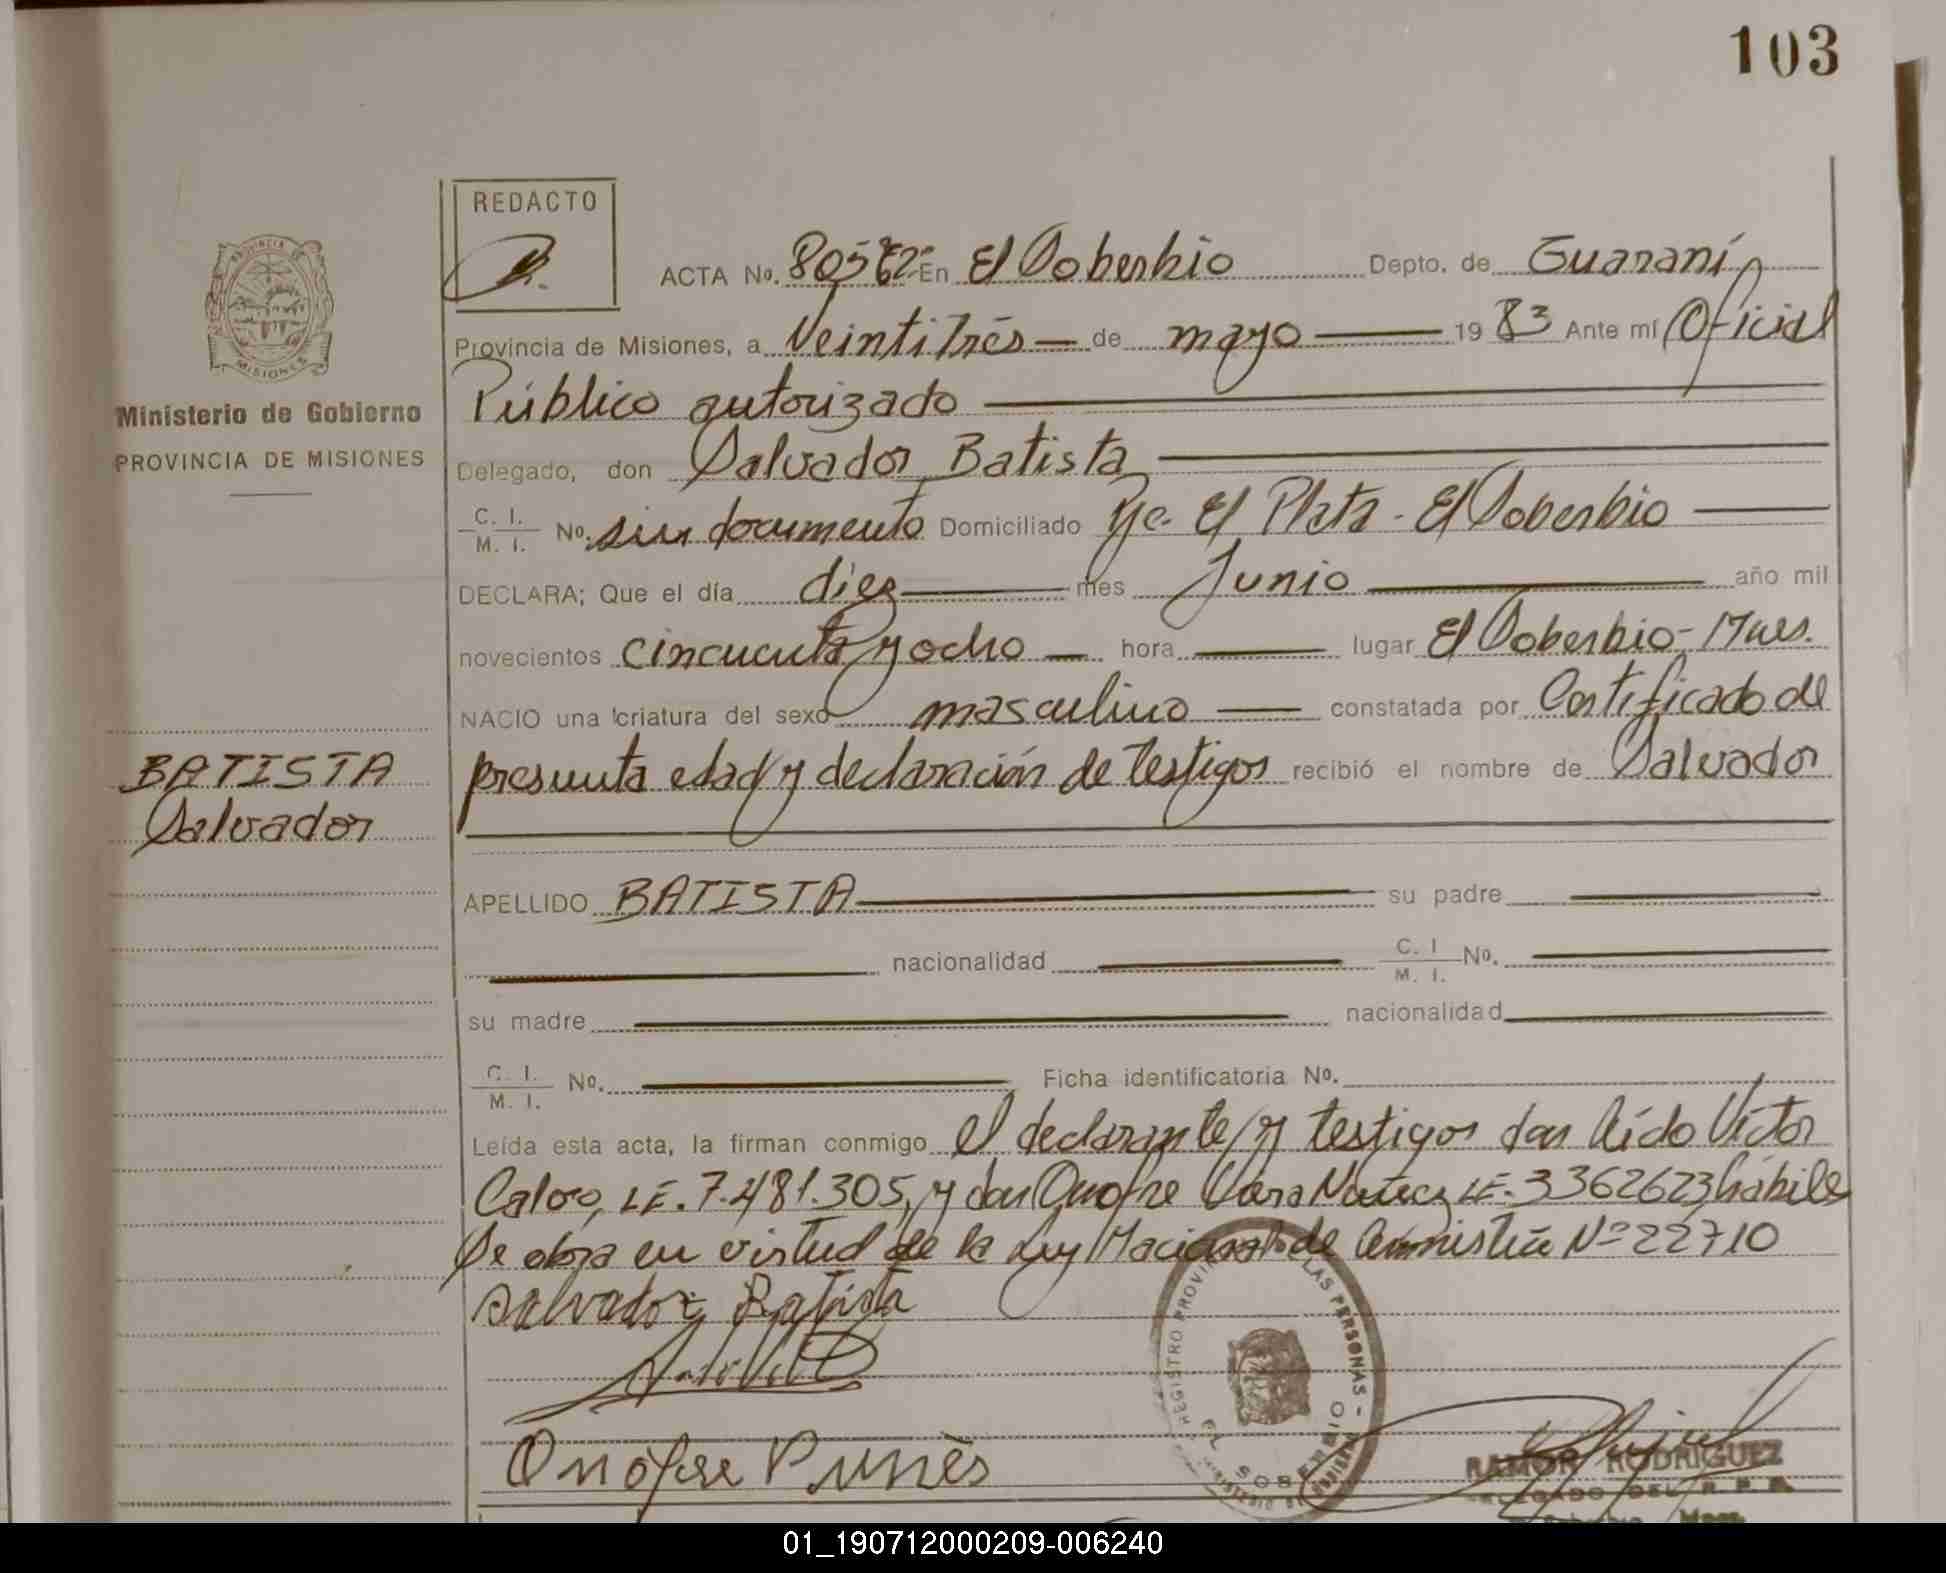 103
REDACTO
ACTA No. En El Soberbio Depto. de Guaraní
Provincia de Misiones, a Veintitrés de mayo 1983 Ante mí Oficial
Público autorizado
Delegado, don Salvador Batista
C. I.
M. I. No. sin documento Domiciliado El Plata - El Soberbio
DECLARA; Que el día diez mes Junio año mil
novecientos cincuenta y ocho hora lugar El Soberbio - Mnes.
NACIO una criatura del sexo masculino constatada por Certificado de
presunta edad y declaración de testigos recibió el nombre de Salvador
APELLIDO BATISTA su padre
nacionalidad C. I
M. I. No.
su madre nacionalidad
C. I.
M. I. No. Ficha identificatoria No.
Leída esta acta, la firman conmigo el declarante y testigos don Víctor
LE. 7.481.305, y don Onofre LE. 3362623 hábiles
Se obra en virtud de la Ley Nacional de Amnistía Nº 22710
Salvador Batista
Onofre
PROVINCIA DE
MISIONES
Ministerio de Gobierno
PROVINCIA DE MISIONES
BATISTA
Salvador
REGISTRO PROVINCIAL DE LAS PERSONAS -
EL SOBERBIO
RAMON RODRIGUEZ
DELEGADO DEL R. P. P.
01_190712000209-006240